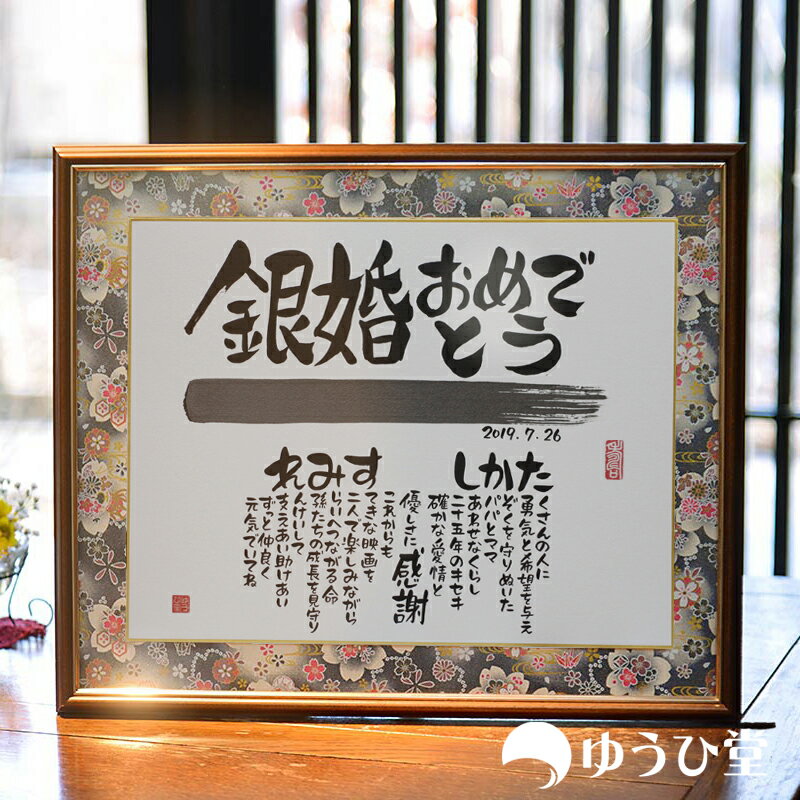 銀婚おめで
とう
2019.7.26
たかし
たくさんの人に
勇気と希望を与え
ぞくを守りぬいた
パパとママ
あわせなくらし
二十五年のキセキ
確かな愛情と
優しさに感謝
すみれ
これからも
てきな映画を
二人で楽しみながら
らいへつながる命
孫たちの成長を見守り
んけいして
支えあい助けあい
ずっと仲良く
元気でいてね
ゆうひ堂